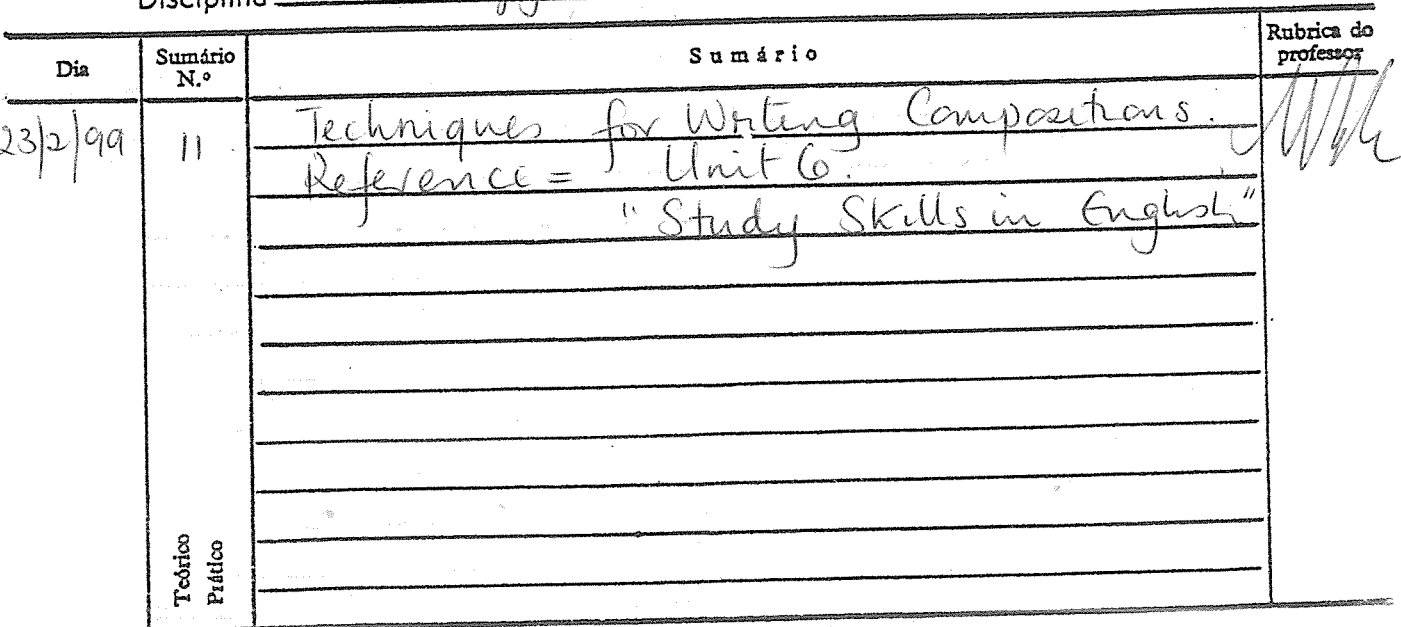 Disciplina
Dia
Sumário N.º
Sumário
Rubrica do professor
23/2/99
11
Techniques for Writing Compositions.
Reference = Unit 6.
"Study Skills in English"
Teórico
Prático